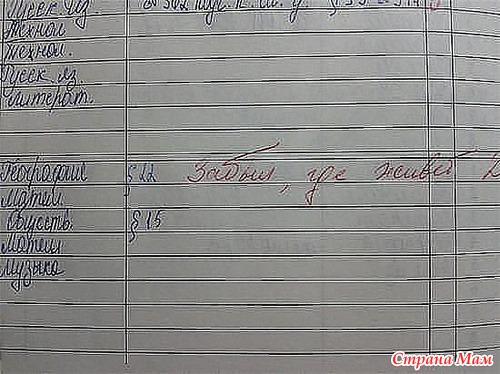 Русск. яз.
Технол.
Технол.
Русск яз.
Литерат.
География § 22 Забыл, где живёт
Матем.
Обществ. § 15
Матем
Музыка
Страна Мам